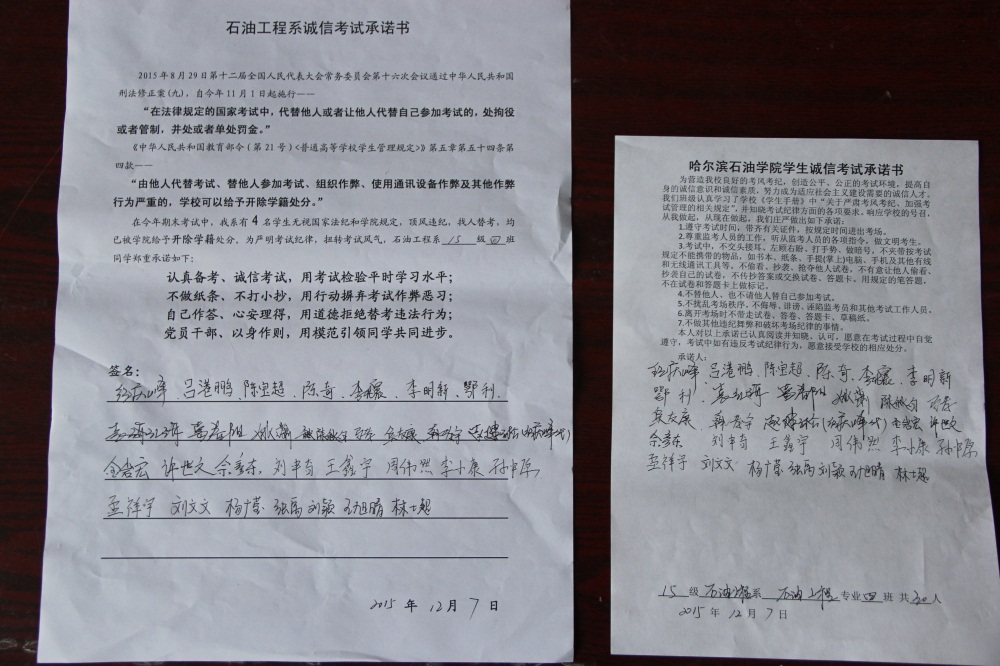 石油工程系诚信考试承诺书
2015年8月29日第十二届全国人民代表大会常务委员会第十六次会议通过中华人民共和国
刑法修正案(九)，自今年11月1日起施行——
“在法律规定的国家考试中，代替他人或者让他人代替自己参加考试的，处拘役
或者管制，并处或者单处罚金。”
《中华人民共和国教育部令(第21号)<普通高等学校学生管理规定>》第五章第五十四条第
四款——
“由他人代替考试、替他人参加考试、组织作弊、使用通讯设备作弊及其他作弊
行为严重的，学校可以给予开除学籍处分。”
在今年期末考试中，我系有4名学生无视国家法纪和学院规定，顶风违纪，找人替考，均
已被学院给予开除学籍处分。为严明考试纪律，扭转考试风气，石油工程系 15 级 四 班
同学郑重承诺如下：
认真备考、诚信考试，用考试检验平时学习水平；
不做纸条、不打小抄，用行动摒弃考试作弊恶习；
自己作答、心安理得，用道德拒绝替考违法行为；
党员干部、以身作则，用模范引领同学共同进步。
签名：
吕港鹏、陈宝超、陈奇、李明新、鄂利、
许世文 刘丰奇 王鑫宇 周伟然 李小康
孟祥宇 刘文文 杨广莹 张禹 刘颖 林士超
2015 年 12 月 7 日
哈尔滨石油学院学生诚信考试承诺书
为营造我校良好的考风考纪，创造公平、公正的考试环境，提高自
身的诚信意识和诚信素质，努力成为适应社会主义建设需要的诚信人才，
我们班级认真学习了学校《学生手册》中“关于严肃考风考纪、加强考
试管理的相关规定”，并知晓考试纪律方面的各项要求，响应学校的号召，
从我做起，从现在做起，我们庄严做出如下承诺：
1.遵守考试时间，带齐有关证件，按规定时间进出考场。
2.尊重监考人员的工作，听从监考人员的各项指令，做文明考生。
3.考试中，不交头接耳、左顾右盼、打手势、做暗号，不夹带按考试
规定不能携带的物品，如书本、纸条、手提(掌上)电脑、手机及其他有线
和无线通讯工具等。不偷看、抄袭、抢夺他人试卷，不有意让他人偷看、
抄袭自己的试卷，不传抄答案或交换试卷、答题卡，用规定的笔答题，
不在试卷和答题卡上做标记。
4.不替他人、也不请他人替自己参加考试。
5.不扰乱考场秩序，不侮辱、诽谤、诬陷监考员和其他考试工作人员。
6.离开考场时不带走试卷、答卷、答题卡、草稿纸。
7.不做其他违纪舞弊和破坏考场纪律的事情。
本人对以上承诺已认真阅读并知晓、认可，愿意在考试过程中自觉
遵守，考试中如有违反考试纪律行为，愿意接受学校的相应处分。
承诺人：
吕港鹏、陈宝超、陈奇、李明新
鄂利 许世文
刘丰奇 王鑫宇 周伟然 李小康
孟祥宇 刘文文 杨广莹 张禹 刘颖 林士超
15 级 石油工程 系 石油工程 专业 四 班 共 30 人
2015 年 12 月 7 日